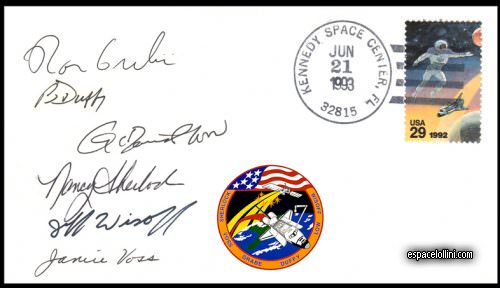 Ron Grabe
B Duffy
G David Low
Nancy Sherlock
Jeff Wisoff
Janice Voss
KENNEDY SPACE CENTER, FL
JUN
21
1993
32815
USA
29 1992
SHERLOCK
WISOFF
VOSS GRABE DUFFY LOW
espacelollini.com